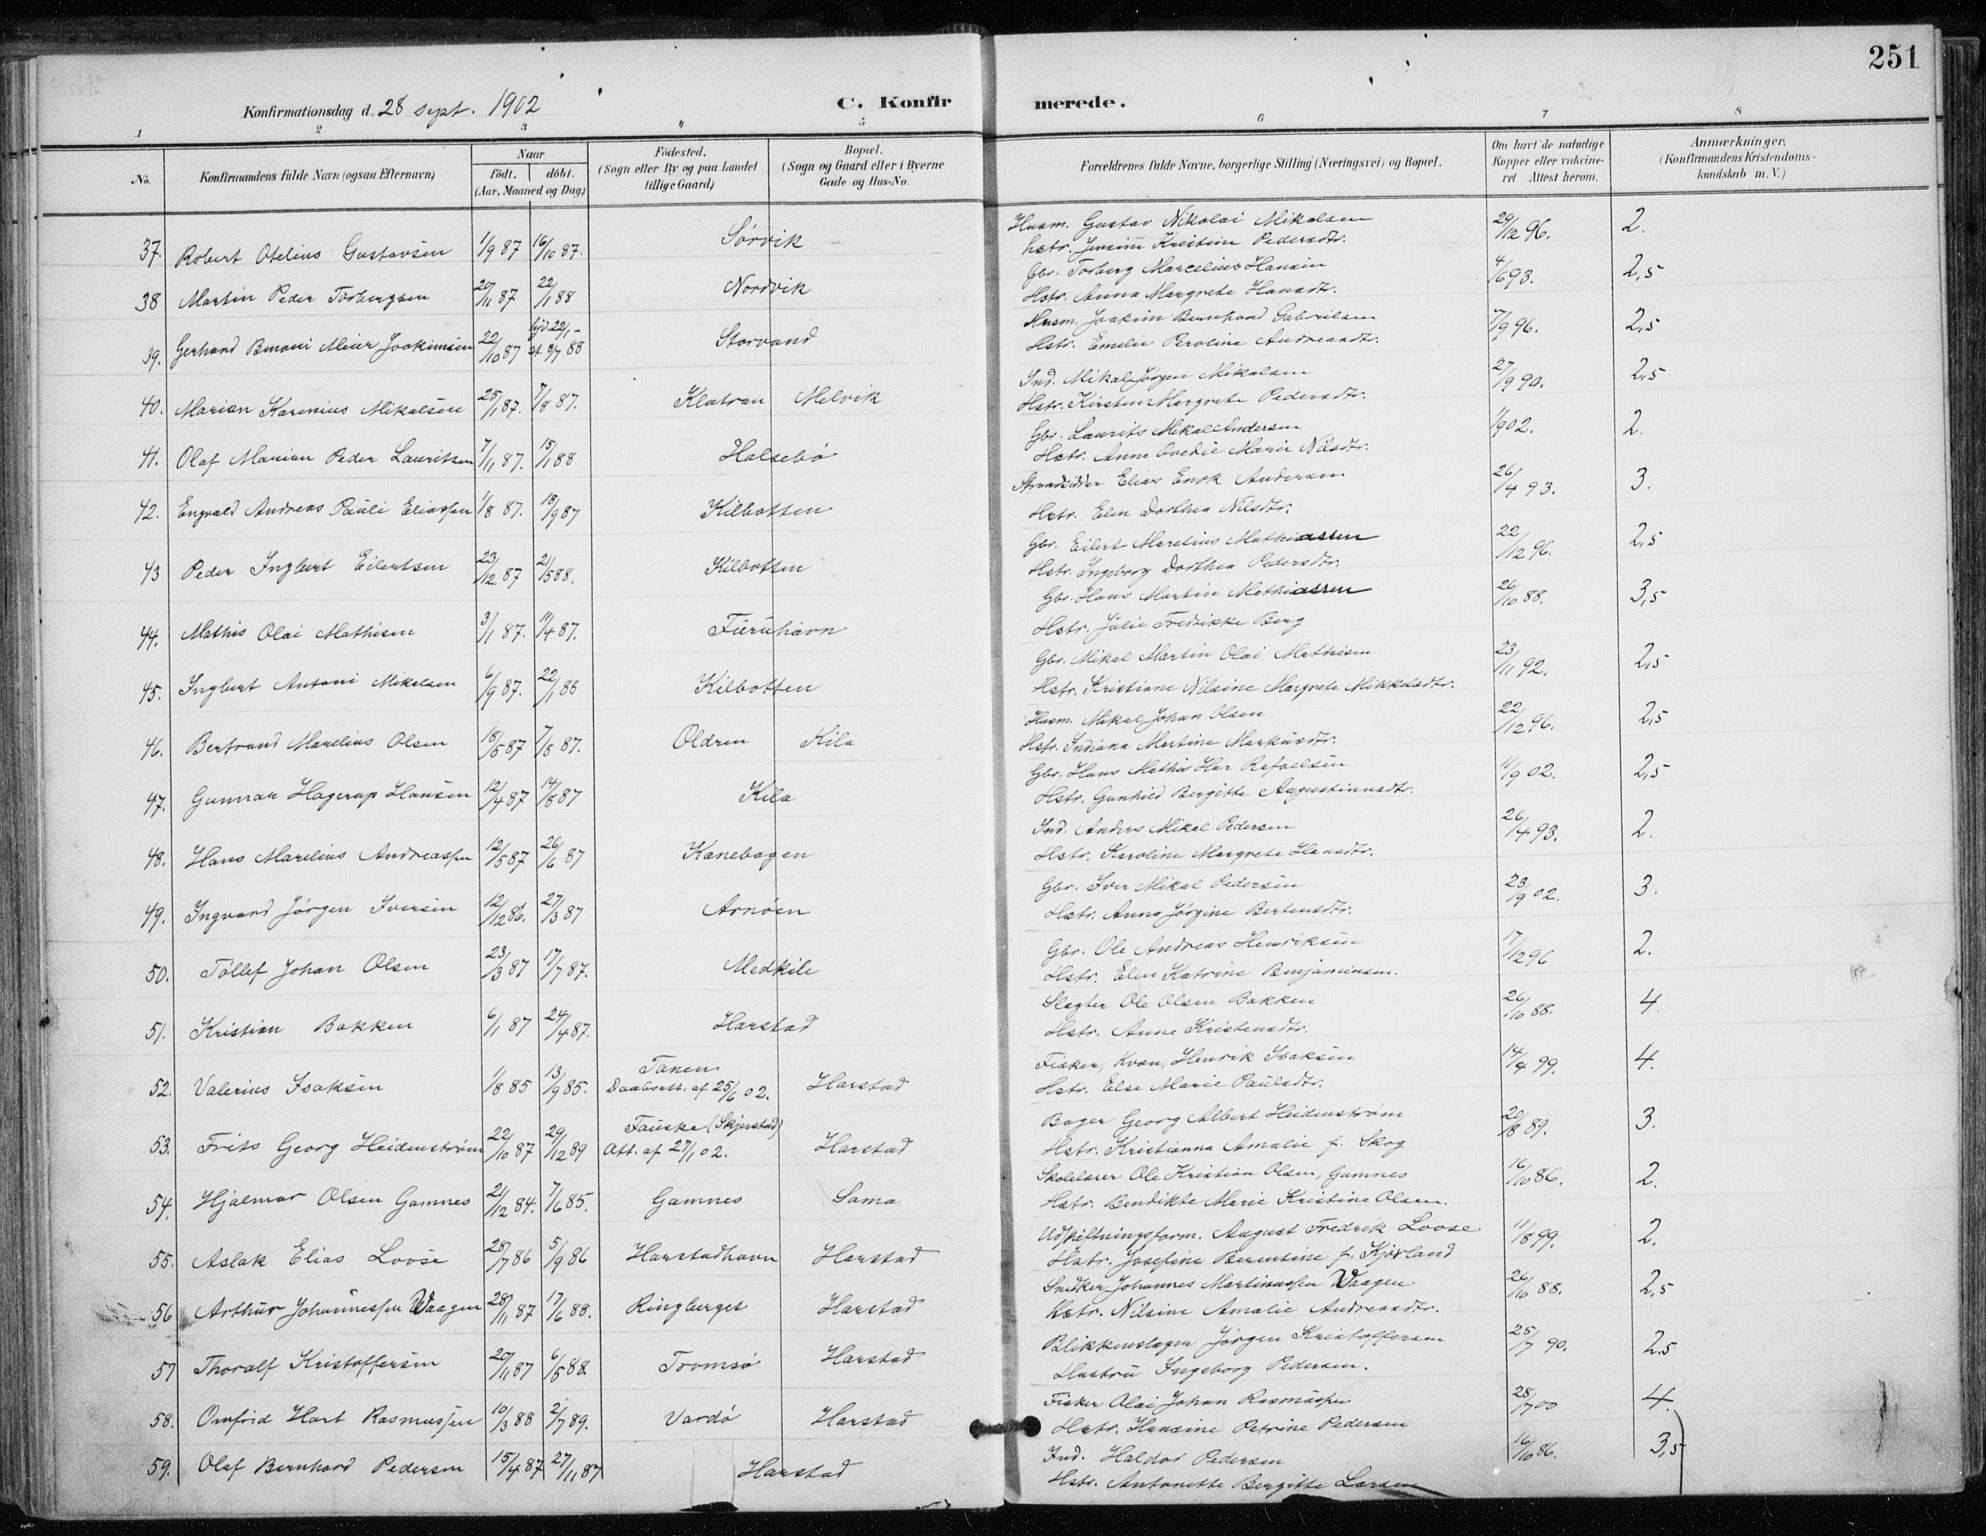 251
Konfirmationsdag d. 28 sept. 1902
C. Konfirmerede.
1 2 3 4 5 6 7 8
No.
Konfirmandens fulde Navn (ogsaa Efternavn)
Naar
födt. döbt.
(Aar, Maaned og Dag)
Födested.
(Sogn eller By og paa Landet tillige Gaard)
Bopæl.
(Sogn og Gaard eller i Byerne Gade og Hus-No.
Forældrenes fulde Navne, borgerlige Stilling (Næringsvei) og Bopæl.
Om havt de naturlige Kopper eller vakcineret. Attest herom.
Anmærkninger.
(Konfirmandens Kristendomskundskab m. V.)
37. Robert Otelius Gustavsen 1/9 87 16/10 87. Sørvik Husm. Gustav Nikolai Mikalsen 29/12 96. 2.
hstr. Jensine Kristine Pedersdtr.
38 Martin Peder Torbergsen 20/11 87 22/1 88 Nordvik Gbr. Torberg Marcelius Hansen 4/6 93. 2,5
Hstr. Anna Margrete Hansdtr.
39. Gerhard Benoni Meier Joakimsen 22/10 87 22/1- 88 Storvand Husm. Joakim Bernhard Gabrielsen 7/9 96. 2,5
Hstr. Emelie Peroline Andreasdtr.
40. Marian Karenius Mikalsen 25/1 87. 7/8 87. Klatran Melvik Ind. Mikal Jørgen Mikalsen 27/9 90. 2,5
Hstr. Kirsten Margrete Pedersdtr.
41. Olaf Marian Peder Lauritsen 7/11 87. 15/1 88 Halsebø Gbr. Laurits Mikal Andersen 1/9 02. 2.
Hstr. Anne Ovedie Marie Nilsdtr.
42. Engvald Andreas Pauli Eliassen 1/8 87. 18/9 87 Kilbotten Strandsidder Elias Enok Andersen 26/4 93. 3.
Hstr. Elen Dorthea Nilsdtr.
43 Peder Ingbert Eilertsen 23/12 87 21/5 88. Kilbotten Gbr. Eilert Marelius Mathiassen 22/12 96. 2,5
Hstr. Ingeborg Dorthea Pedersdtr.
44. Mathis Olai Mathisen 3/1 87. 11/4 87. Furuhavn Gbr. Hans Martin Mathiassen 26/10 88. 3,5
Hstr. Julie Fredrikke Berg
45. Ingbert Antoni Mikalsen 6/9 87. 22/1 88 Kilbotten Gbr. Mikal Martin Olai Mathisen 23/11 92. 2,5
Hstr. Kristiane Nilsine Margrete Mikkelsdtr.
46. Bertrand Marelius Olsen 18/5 87 7/8 87. Oldren Kila Husm. Mikal Johan Olsen 22/12 96. 2,5
Hstr. Indiana Martine Markusdtr.
47. Gunnar Hagerup Hansen 12/4 87 14/8 87 Kila Gbr. Hans Mathis Rafaelsen 11/9 02. 2,5
Hstr. Gunhild Bergitte Augustinusdtr.
48. Hans Marelius Andreassen 12/5 87 26/6 87 Kanebogen Ind. Anders Mikal Pedersen 26/4 93. 2.
Hstr. Karoline Margrete Hansdtr.
49. Ingvard Jørgen Iversen 12/12 86. 27/3 87 Arnøen Gbr. Iver Mikal Pedersen 23/9 02. 3.
Hstr. Anna Jørgine Bertensdtr.
50. Tollef Johan Olsen 23/3 87 17/7 87. Medkile Gbr. Ole Andreas Henriksen 17/12 96 2.
Hstr. Elen Katrine Benjaminsen.
51. Kristian Bakken 6/1 87 24/4 87. Harstad Slagter Ole Olsen Bakken 26/10 88. 4.
Hstr. Anne Kristensdtr.
52. Valerius Isaksen 1/8 85 13/9 85. Tanen Harstad Fisker, Kvæn, Henrik Isaksen 14/4 99. 4.
Daabsatt. af 25/6 02. Hstr. Else Marie Paulsdtr.
53. Frits Georg Heidenstrøm 22/10 87 29/12 89 Fauske (Skjerstad) Harstad Bager Georg Albert Heidenstrøm 20/8 89. 3.
Att. af 27/1 02. Hstr. Kristianna Amalie f. Skog
54. Hjalmar Olsen Gamnes 21/12 84. 7/6 85. Gamnes Sama Skolelærer Ole Kristian Olsen, Gamnes 16/10 86. 2.
Hstr. Bendikte Marie Kristine Olsen.
55. Aslak Elias Loose 28/7 86 5/9 86 Harstadhavn Harstad Udskiftningsform. August Fredrik Loose 11/8 99. 2.
Hstr. Josefine Berentine f. Kjørland
56 Arthur Johannessen Vaagen 28/11 87 17/6 88. Ringberget Harstad Snedker Johannes Martinussen Vaagen 26/10 88. 2,5
hstr. Nilsine Amalie Andreasdtr.
57 Thoralf Kristoffersen 20/11 87 6/5 88. Tromsø Harstad Blikkenslager Jørgen Kristoffersen 25/7 90. 2.5
Hustru Ingeborg Pedersen.
58. Omfrid Hart Rasmussen 10/3 88 2/7 89. Vardø Harstad Fisker Olai Johan Rasmussen 28/7 00 4.
Hstr. Hansine Petrine Pedersen
59. Olaf Bernhard Pedersen 15/4 87 27/11 87 Harstad Ind. Haldor Pedersen 16/10 86. 3,5
Hstr. Antonette Bergitte Larsen